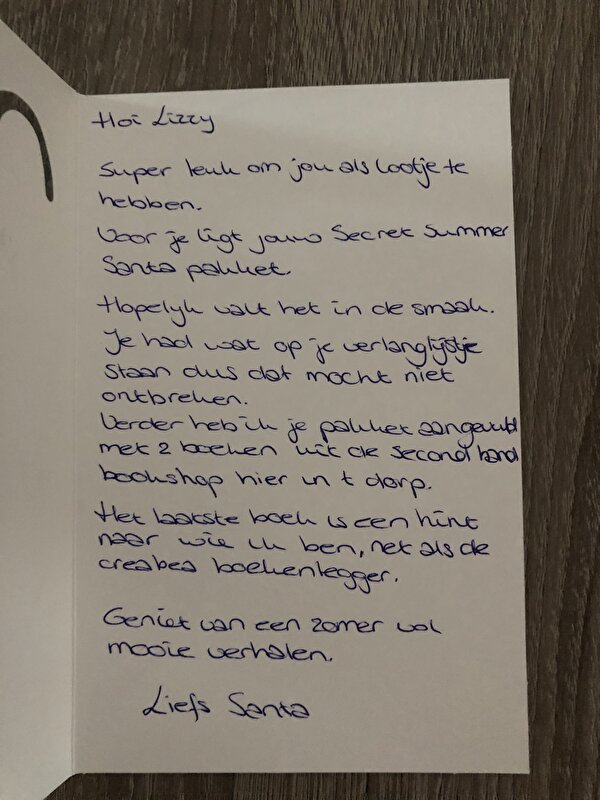 Hoi Lizzy
Super leuk om jou als lootje te
hebben.
Voor je ligt jouw Secret Summer
Santa pakket.
Hopelijk valt het in de smaak.
Je had wat op je verlanglijstje
staan dus dat mocht niet
ontbreken.
Verder heb ik je pakket aangevuld
met 2 boeken uit de second hand
bookshop hier in t dorp.
Het laatste boek is een hint
naar wie ik ben, net als de
creabea boekenlegger.
Geniet van een zomer vol
mooie verhalen.
Liefs Santa